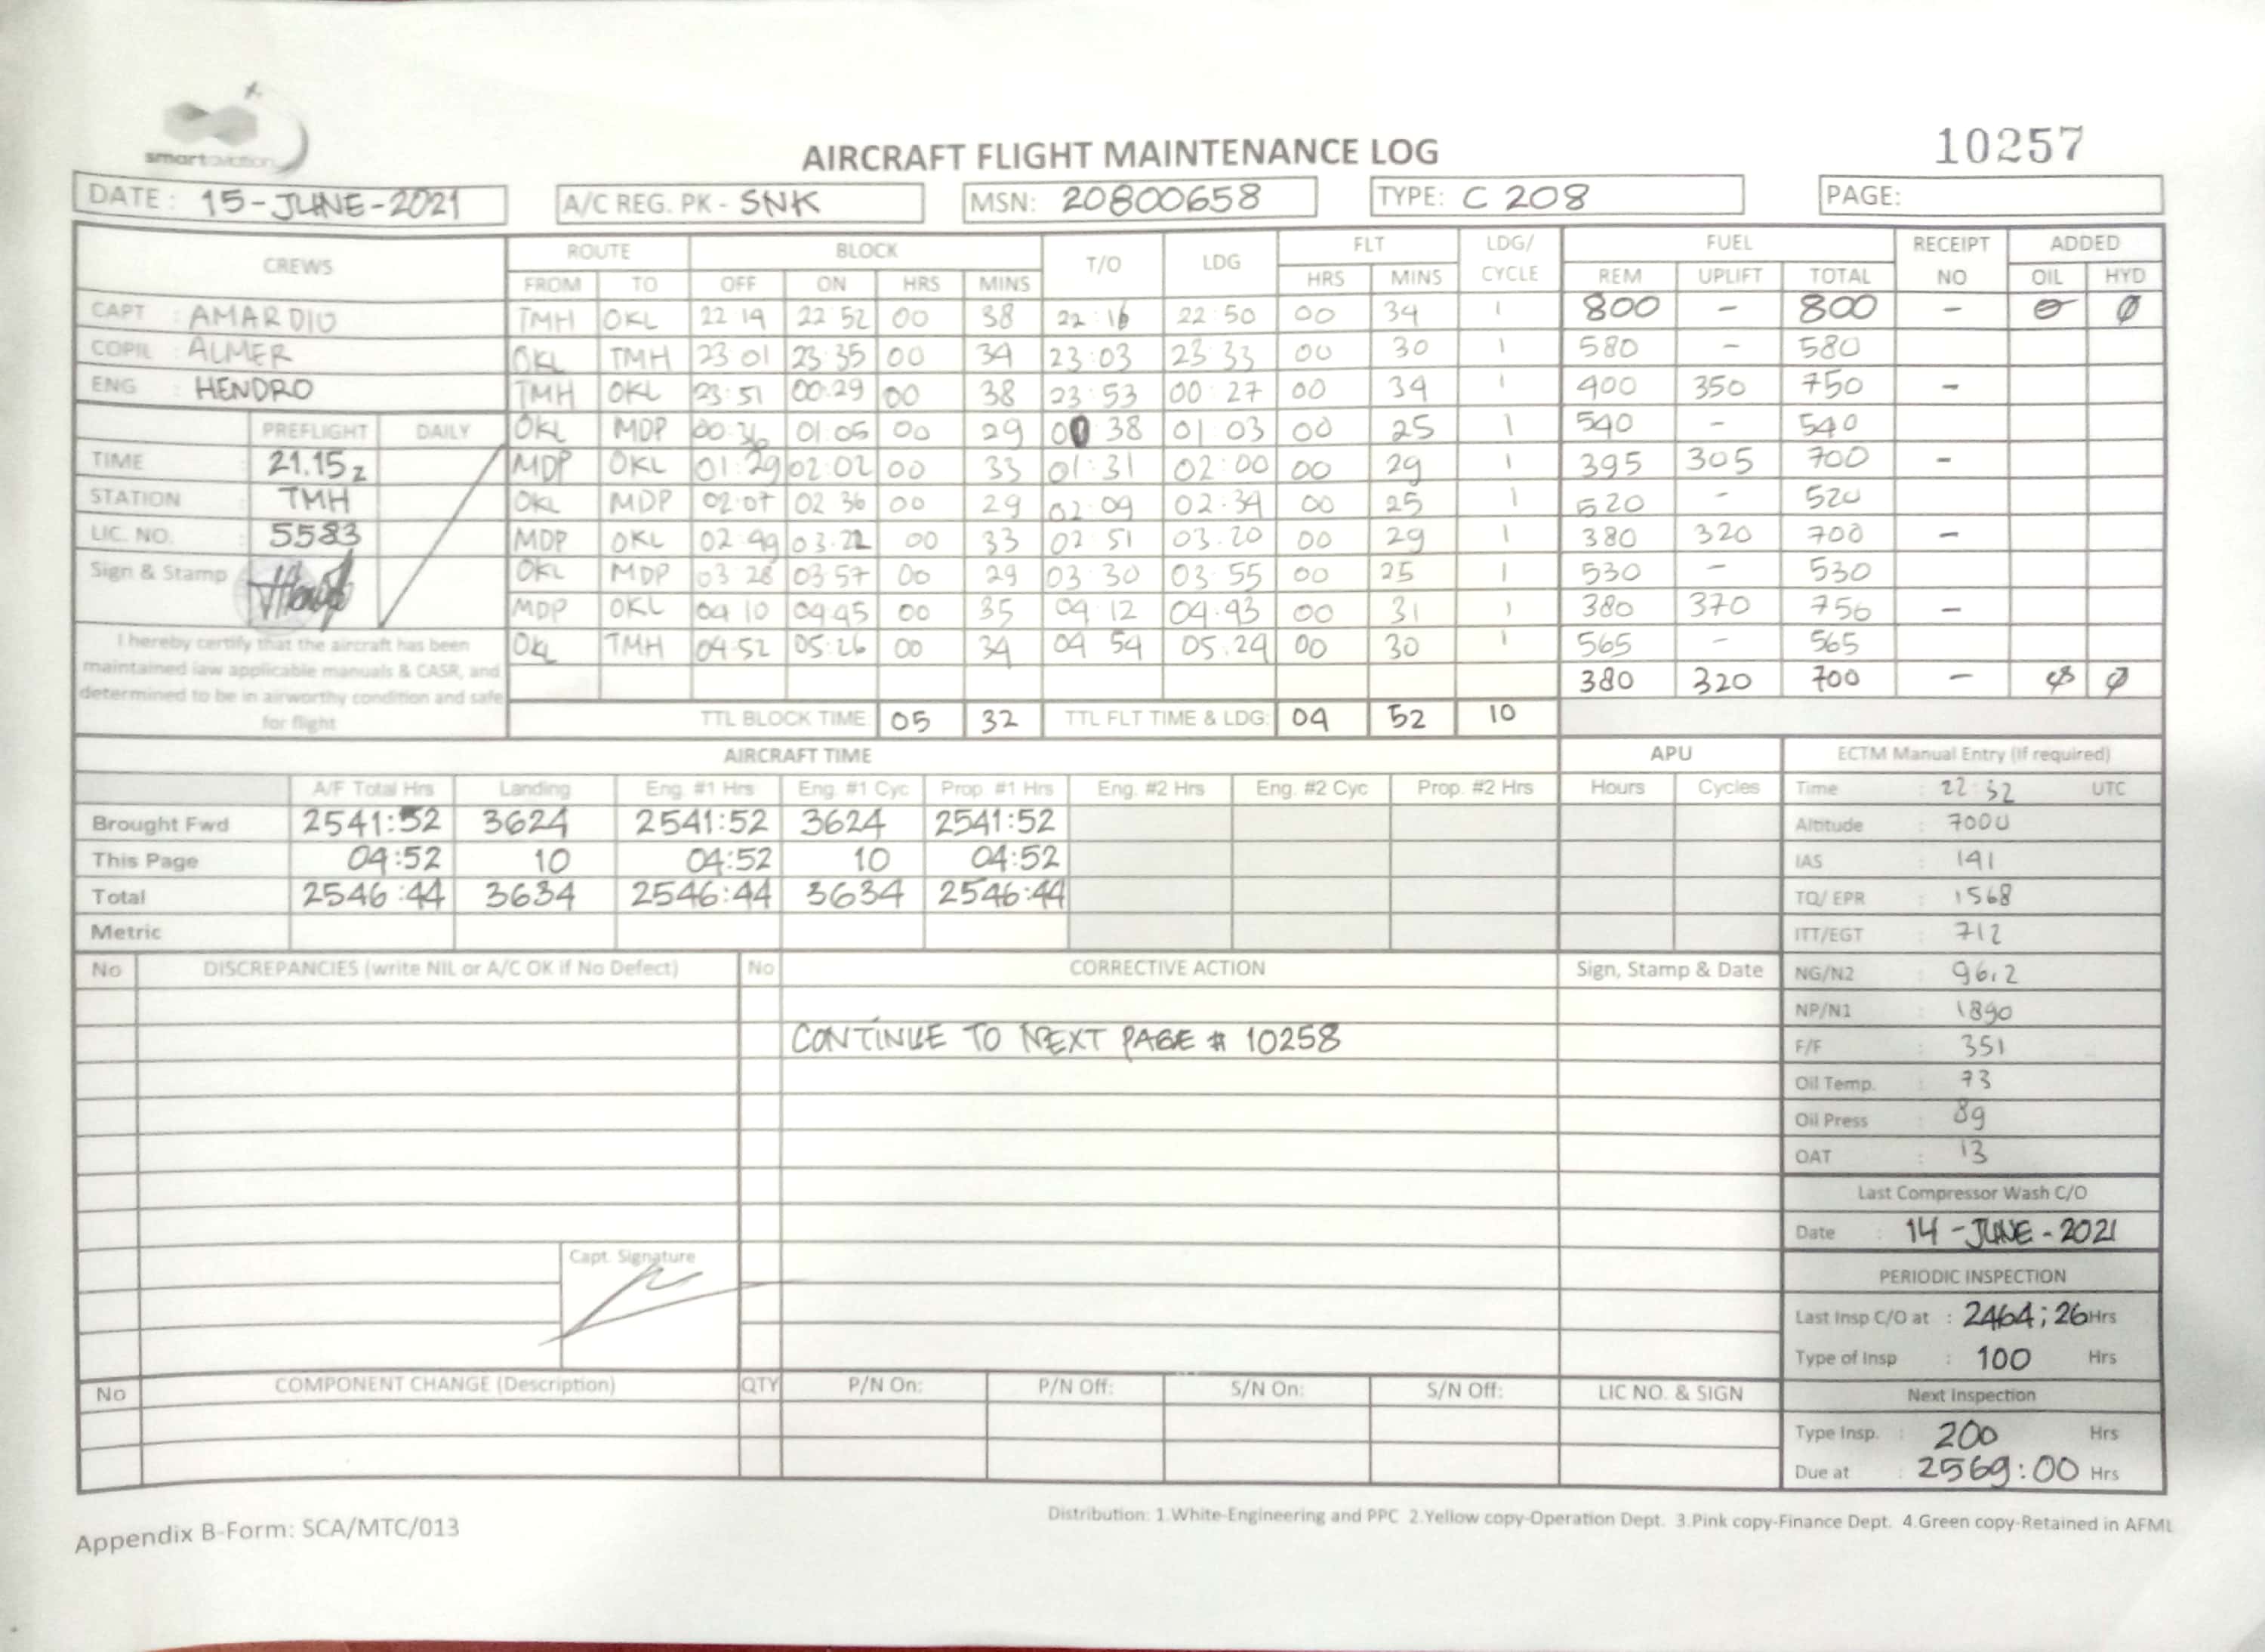 smart aviation
AIRCRAFT FLIGHT MAINTENANCE LOG
10257
DATE : 15-JUNE-2021 A/C REG. PK - SNK MSN: 20800658 TYPE: C 208 PAGE:
CREWS ROUTE BLOCK T/O LDG FLT LDG/ CYCLE FUEL RECEIPT NO ADDED
FROM TO OFF ON HRS MINS HRS MINS REM UPLIFT TOTAL OIL HYD
CAPT : AMARDIO TMH OKL 22 14 22 52 00 38 22:16 22:50 00 34 1 800 - 800 - 0 Ø
COPIL : ALMER OKL TMH 23 01 23:35 00 34 23:03 23 33 00 30 1 580 - 580
ENG : HENDRO TMH OKL 23:51 00:29 00 38 23:53 00:27 00 34 1 400 350 750 -
PREFLIGHT DAILY OKL MDP 00:36 01:05 00 29 00 38 01 03 00 25 1 540 - 540
TIME : 21.15z MDP OKL 01:29 02:02 00 33 01:31 02:00 00 29 1 395 305 700 -
STATION : TMH OKL MDP 02:07 02 36 00 29 02 09 02:34 00 25 1 520 - 520
LIC. NO. : 5583 MDP OKL 02:49 03.22 00 33 02 51 03.20 00 29 1 380 320 700 -
Sign & Stamp OKL MDP 03 28 03:57 00 29 03 30 03 55 00 25 1 530 - 530
MDP OKL 04 10 04:45 00 35 04 12 04.43 00 31 1 380 370 750 -
I hereby certify that the aircraft has been
OKL TMH 04:52 05:26 00 34 04 54 05.24 00 30 1 565 - 565
maintained iaw applicable manuals & CASR, and
380 320 700 - Ø Ø
determined to be in airworthy condition and safe
for flight
TTL BLOCK TIME 05 32 TTL FLT TIME & LDG: 04 52 10
AIRCRAFT TIME APU ECTM Manual Entry (If required)
A/F Total Hrs Landing Eng. #1 Hrs Eng. #1 Cyc Prop. #1 Hrs Eng. #2 Hrs Eng. #2 Cyc Prop. #2 Hrs Hours Cycles Time : 22:32 UTC
Brought Fwd 2541:52 3624 2541:52 3624 2541:52 Altitude : 7000
This Page 04:52 10 04:52 10 04:52 IAS : 141
Total 2546:44 3634 2546:44 3634 2546:44 TQ/ EPR : 1568
Metric ITT/EGT : 712
No DISCREPANCIES (write NIL or A/C OK if No Defect) No CORRECTIVE ACTION Sign, Stamp & Date NG/N2 : 96.2
NP/N1 : 1890
CONTINUE TO NEXT PAGE # 10258
F/F : 351
Oil Temp. : 73
Oil Press : 89
OAT : 13
Last Compressor Wash C/O
Date : 14-JUNE-2021
Capt. Signature
PERIODIC INSPECTION
Last Insp C/O at : 2464;26 Hrs
Type of Insp : 100 Hrs
No COMPONENT CHANGE (Description) QTY P/N On: P/N Off: S/N On: S/N Off: LIC NO. & SIGN Next Inspection
Type Insp. : 200 Hrs
Due at : 2569:00 Hrs
Appendix B-Form: SCA/MTC/013
Distribution: 1.White-Engineering and PPC 2.Yellow copy-Operation Dept. 3.Pink copy-Finance Dept. 4.Green copy-Retained in AFML